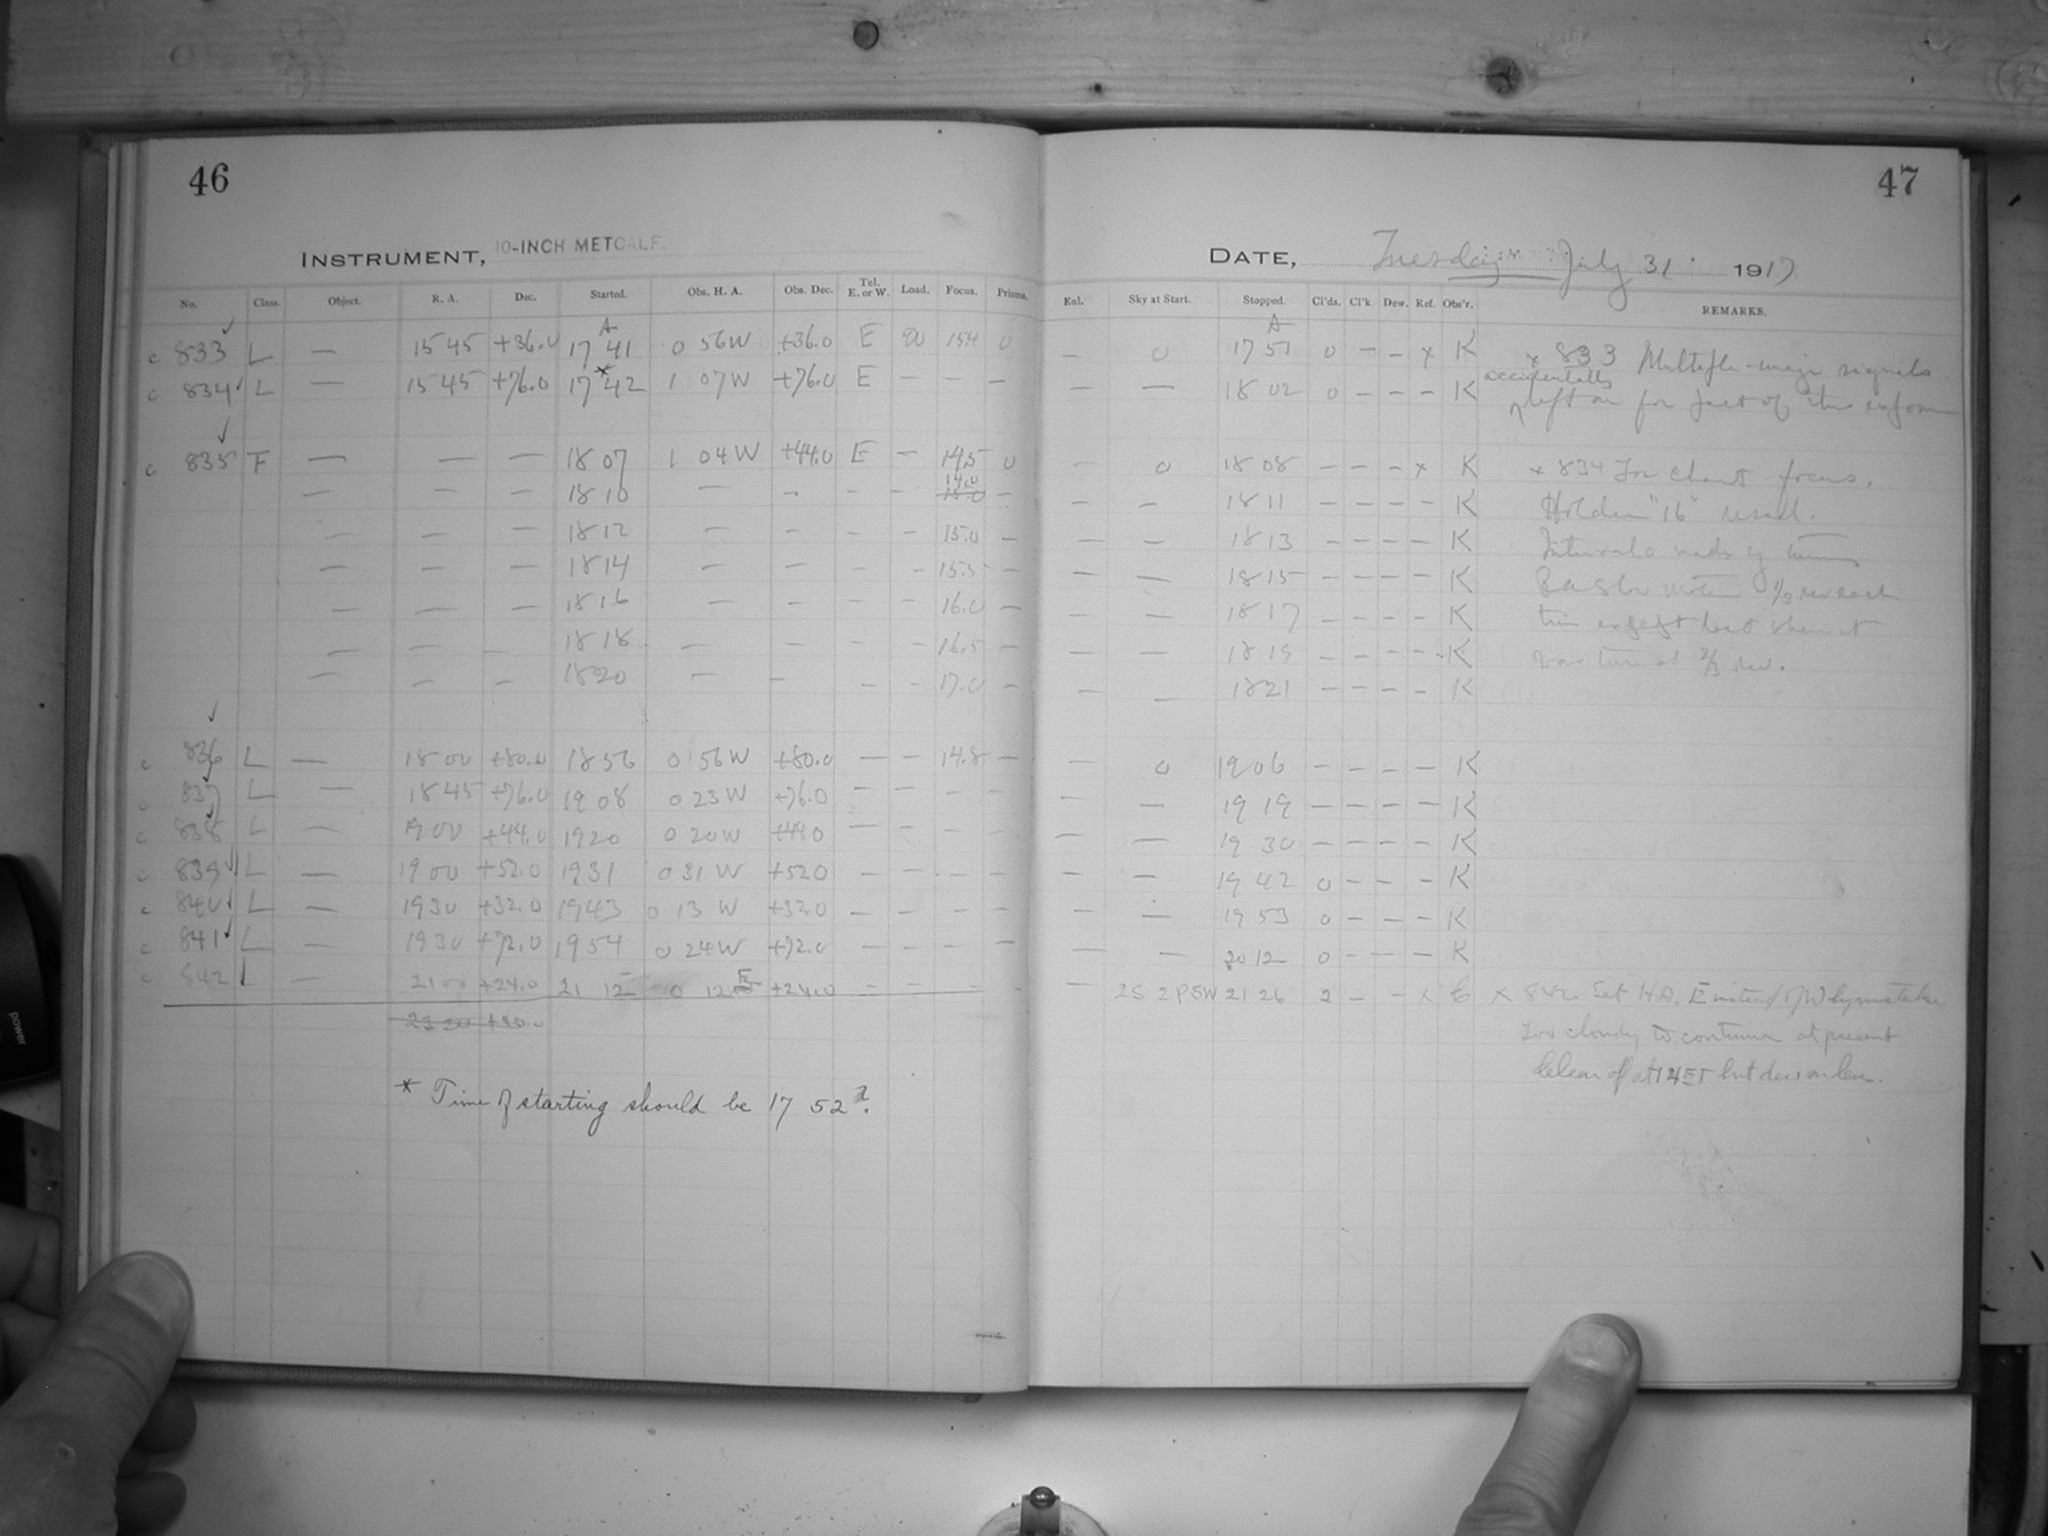 46
47
INSTRUMENT, 10-INCH METCALF.
DATE, Tuesday July 31 1917
No. Class. Object. R. A. Dec. Started. Obs. H. A. Obs. Dec. Tel. E. or W. Load. Focus. Prisms.
Eal. Sky at Start. Stopped. Cl'ds. Cl'k. Dew. Ref. Obs'r. REMARKS.
A
A
c 833 ✓ L — 15 45 +36.0 17 41 0 56 W +36.0 E 20 15.4 0 — 0 17 51 0 — — x K x 833 signals
c 834 ✓ L — 15 45 +76.0 17 *42 1 07 W +76.0 E — — — — — 18 02 0 — — — K accidentally left on for part of this
c 835 ✓ F — — — 18 07 1 04 W +44.0 E — 14.5 0 — 0 18 08 — — — x K x 834 For chart focus.
— — — 18 10 — — — — 14.0 15.0 — — — 18 11 — — — — K Holder "16" used.
— — — 18 12 — — — — 15.0 — — — 18 13 — — — — K Intervals made by
— — — 18 14 — — — — 15.5 — — — 18 15 — — — — K RA Slow motion 1/3 rev each
— — — 18 16 — — — — 16.0 — — — 18 17 — — — — K time except last when it
— — — 18 18 — — — — 16.5 — — — 18 19 — — — — K was turned 2/3 rev.
— — — 18 20 — — — — 17.0 — — — 18 21 — — — — K
c 836 ✓ L — 18 00 +80.0 18 56 0 56 W +80.0 — — 14.8 — — 0 19 06 — — — — K
c 837 ✓ L — 18 45 +76.0 19 08 0 23 W +76.0 — — — — — — 19 19 — — — — K
c 838 ✓ L — 19 00 +44.0 19 20 0 20 W +44.0 — — — — — — 19 30 — — — — K
c 839 ✓ L — 19 00 +52.0 19 31 0 31 W +52.0 — — — — — — 19 42 0 — — — K
c 840 ✓ L — 19 30 +32.0 19 43 0 13 W +32.0 — — — — — — 19 53 0 — — — K
c 841 ✓ L — 19 30 +72.0 19 54 0 24 W +72.0 — — — — — — 20 12 0 — — — K
c 842 ✓ L — 21 00 +24.0 21 12 0 12 E +24.0 — — — — — 2S 2P SW 21 26 2 — — x x 842 Set H.A. E instead of W by mistake
23 20 +80.0
Too cloudy to continue at present
at 14 EST but
* Time of starting should be 17 52?